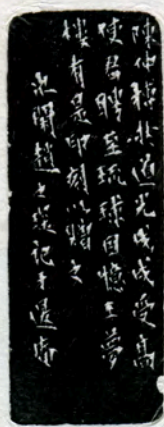 陳仲道光戊戌受高
使君聘至琉球因憶王夢
樓有是印刻以贈之
次閑趙之琛記于退庵